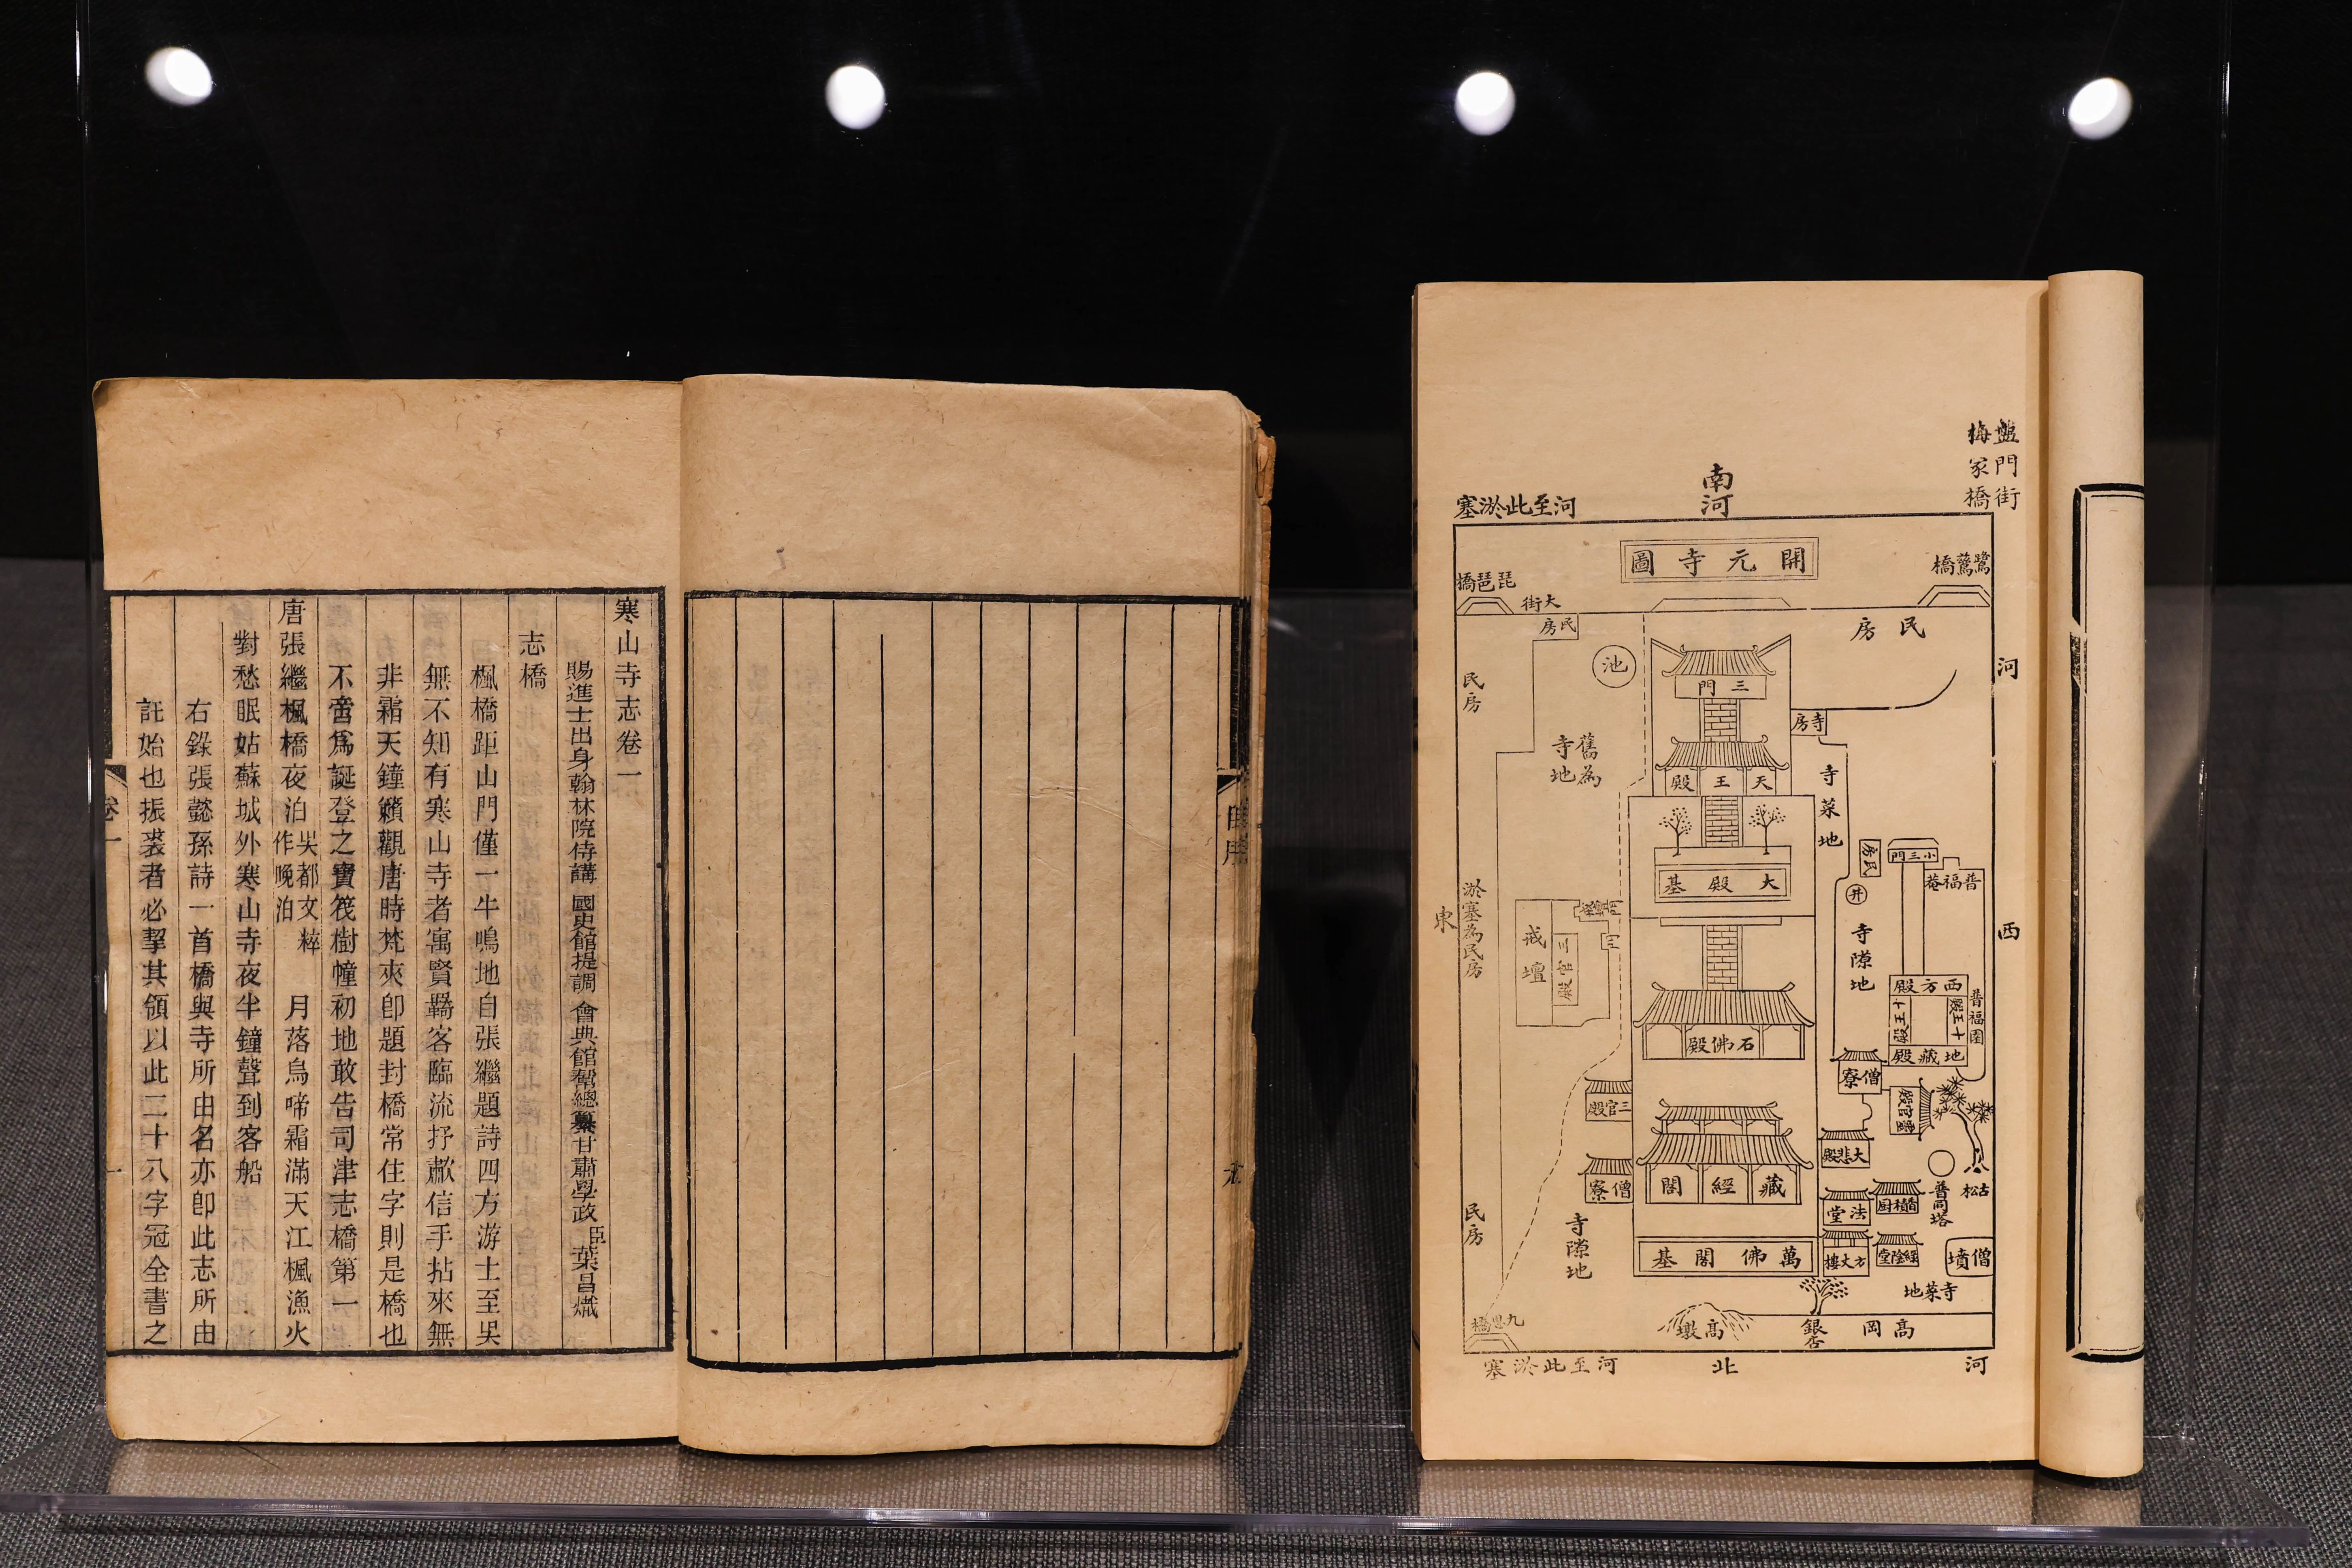 寒山寺志卷一
賜進士出身翰林院侍講 國史館提調 會典館幫總纂甘肅學政臣葉昌熾
志橋
楓橋距山門僅一牛鳴地自張繼題詩四方游士至吳
無不知有寒山寺者寓賢羈客臨流抒歗信手拈來無
非霜天鐘籟觀唐時梵夾卽題封橋常住字則是橋也
不啻爲誕登之寶筏樹幢初地敢告司津志橋第一
唐張繼楓橋夜泊吳都文粹作晚泊 月落烏啼霜滿天江楓漁火
對愁眠姑蘇城外寒山寺夜半鐘聲到客船
右錄張懿孫詩一首橋與寺所由名亦卽此志所由
託始也振裘者必挈其領以此二十八字冠全書之
卷一
一
盤門街
梅家橋
南河
河至此淤塞
開元寺圖
鷺鷥橋
琵琶橋
大街
民房
民房
民房
河
池
三門
寺房
舊為寺地
天王殿
寺菜地
大殿基
民房
小三門
普福菴
井
東
西
淤塞為民房
戒壇
寺隙地
石佛殿
西方殿
十王殿
十王殿
地藏殿
普福園
僧寮
三官殿
靈官殿
大悲殿
藏經閣
僧寮
法堂
香積厨
普同塔
古松
寺隙地
民房
萬佛閣基
方丈樓
僧墳
寺菜地
高墩
銀杏
高岡
河至此淤塞
北
河